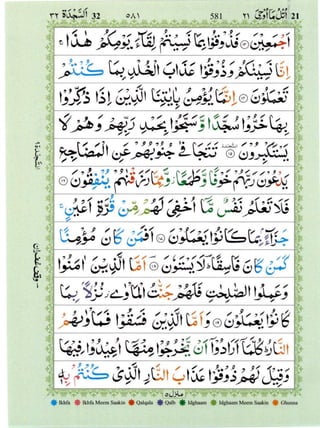 ٣٢ اَلسَّجْدَة 32 ٥٨١ 581 ٢١ اُتْلُ مَا اُوْحِیَ 21
اَجْمَعِیْنَ ۝۱۳ فَذُوْقُوْا بِمَا نَسِیْتُمْ لِقَآءَ یَوْمِكُمْ هٰذَا ۚ
اِنَّا نَسِیْنٰكُمْ وَ ذُوْقُوْا عَذَابَ الْخُلْدِ بِمَا كُنْتُمْ
تَعْمَلُوْنَ ۝۱۴ اِنَّمَا یُؤْمِنُ بِاٰیٰتِنَا الَّذِیْنَ اِذَا ذُكِّرُوْا
بِهَا خَرُّوْا سُجَّدًا وَّ سَبَّحُوْا بِحَمْدِ رَبِّهِمْ وَ هُمْ لَا
یَسْتَكْبِرُوْنَ ۝۱۵ تَتَجَافٰی جُنُوْبُهُمْ عَنِ الْمَضَاجِعِ
یَدْعُوْنَ رَبَّهُمْ خَوْفًا وَّ طَمَعًا ؗ وَّ مِمَّا رَزَقْنٰهُمْ یُنْفِقُوْنَ ۝۱۶
فَلَا تَعْلَمُ نَفْسٌ مَّاۤ اُخْفِیَ لَهُمْ مِّنْ قُرَّةِ اَعْیُنٍ ۚ
جَزَآءًۢ بِمَا كَانُوْا یَعْمَلُوْنَ ۝۱۷ اَفَمَنْ كَانَ مُؤْمِنًا
كَمَنْ كَانَ فَاسِقًا ؔؕ لَا یَسْتَوٗنَ ۝۱۸ اَمَّا الَّذِیْنَ اٰمَنُوْا
وَ عَمِلُوا الصّٰلِحٰتِ فَلَهُمْ جَنّٰتُ الْمَاْوٰی ؗ نُزُلًۢا بِمَا
كَانُوْا یَعْمَلُوْنَ ۝۱۹ وَ اَمَّا الَّذِیْنَ فَسَقُوْا فَمَاْوٰىهُمُ
النَّارُ ؕ كُلَّمَاۤ اَرَادُوْۤا اَنْ یَّخْرُجُوْا مِنْهَاۤ اُعِیْدُوْا فِیْهَا
وَ قِیْلَ لَهُمْ ذُوْقُوْا عَذَابَ النَّارِ الَّذِیْ كُنْتُمْ بِهٖ
منزل ٥
Ikhfa Ikhfa Meem Saakin Qalqala Qalb Idghaam Idghaam Meem Saakin Ghunna